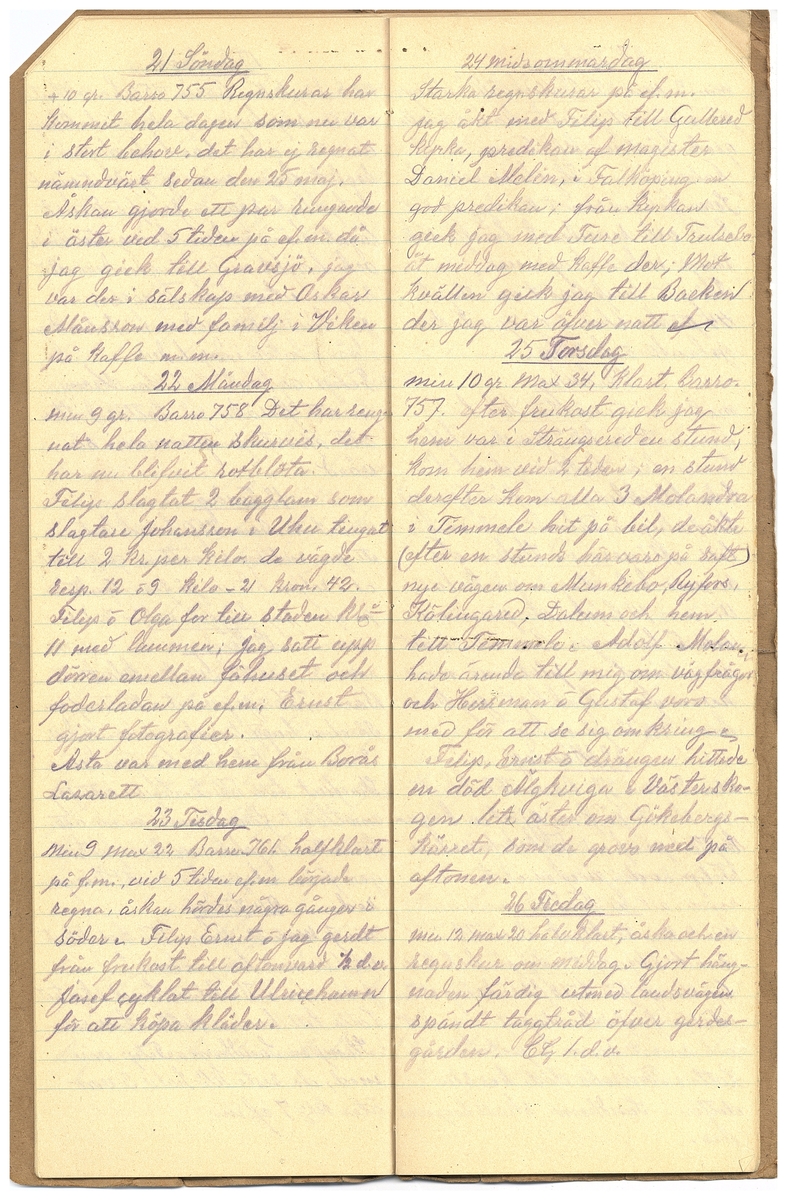 21 Söndag
+10 gr. Barro 755 Regnskuras har
kommit hela dagen som nu var
i stort behov. det har ej regnat
nämndvärt sedan den 25 maj.
Åskan gjorde ett par rungande
i öster ved 5 tiden på ef.m. då
jag gick till Gravsjö. jag
var der i sälskap med Oskar
Månsson med familj i Viken
på kaffe m.m.
22 Måndag
min 9 gr. Barro 758 Det har reng-
nat hela natten skurvis, det
har nu blifvit rotblöta.
Filip slagtat 2 bagglam som
slagtare Johansson i Uhu tingat
till 2 kr. per kilo. de vägde
resp. 12 ö 9 kilo - 21 kron. 42.
Filip ö Olga for till staden kl
11 med lammen; jag satt upp
dörren emellan fähuset och
foderladan på ef.m. Ernst
gjort fotografier.
Asta var med hem från Borås
Lazarett
23 Tisdag
Min 9 Max 22 Barro 764 halfklart
på f.m., vid 5 tiden ef.m började
regna, åskan hördes några gånger i
söder. Filip Ernst ö jag gerdt
från frukost till aftonvard ½ d.v.
Josef cyklat till Ulricehamn
för att köpa kläder.
24 midsommardag
Starka regnskurar på ef.m.
jag åkt med Filip till Gullered
kyrka, predikan af magister
Daniel Melin, i Falköping en
god predikan; från kyrkan
gick jag med Ture till Trulsebo
åt meddag med kaffe der; Mot
kvällen gick jag till Backen
der jag var öfver natt
25 Torsdag
min 10 gr. Max 34, Klart. barro.
757. efter frukost gick jag
hem var i Strängsered en stund,
kom hem vid 2 tiden; en stund
derefter kom alla 3 Molandra
i Timmele hit på bil, de åkte
(efter en stunds härvaro på raft)
nye vägen om Munkebo, Ryfors,
Kölingared, Dalum och hem
till Timmele. Adolf Molan
hade ärende till mig om vägfrågor
och Herrman ö Gustaf voro
med för att se sig omkring
Filip, Ernst ö drängen hittade
en död Älgkviga i Västersko-
gen lite öster om Gökebergs-
kärret, som de grovo med på
aftonen.
26 Fredag
min 12 max 20 halvklart, åska och en
regnskur om middag. Gjort häng-
naden färdig utmed landsvägen
spändt taggtråd öfver gerdes-
gården. 1. d.v.